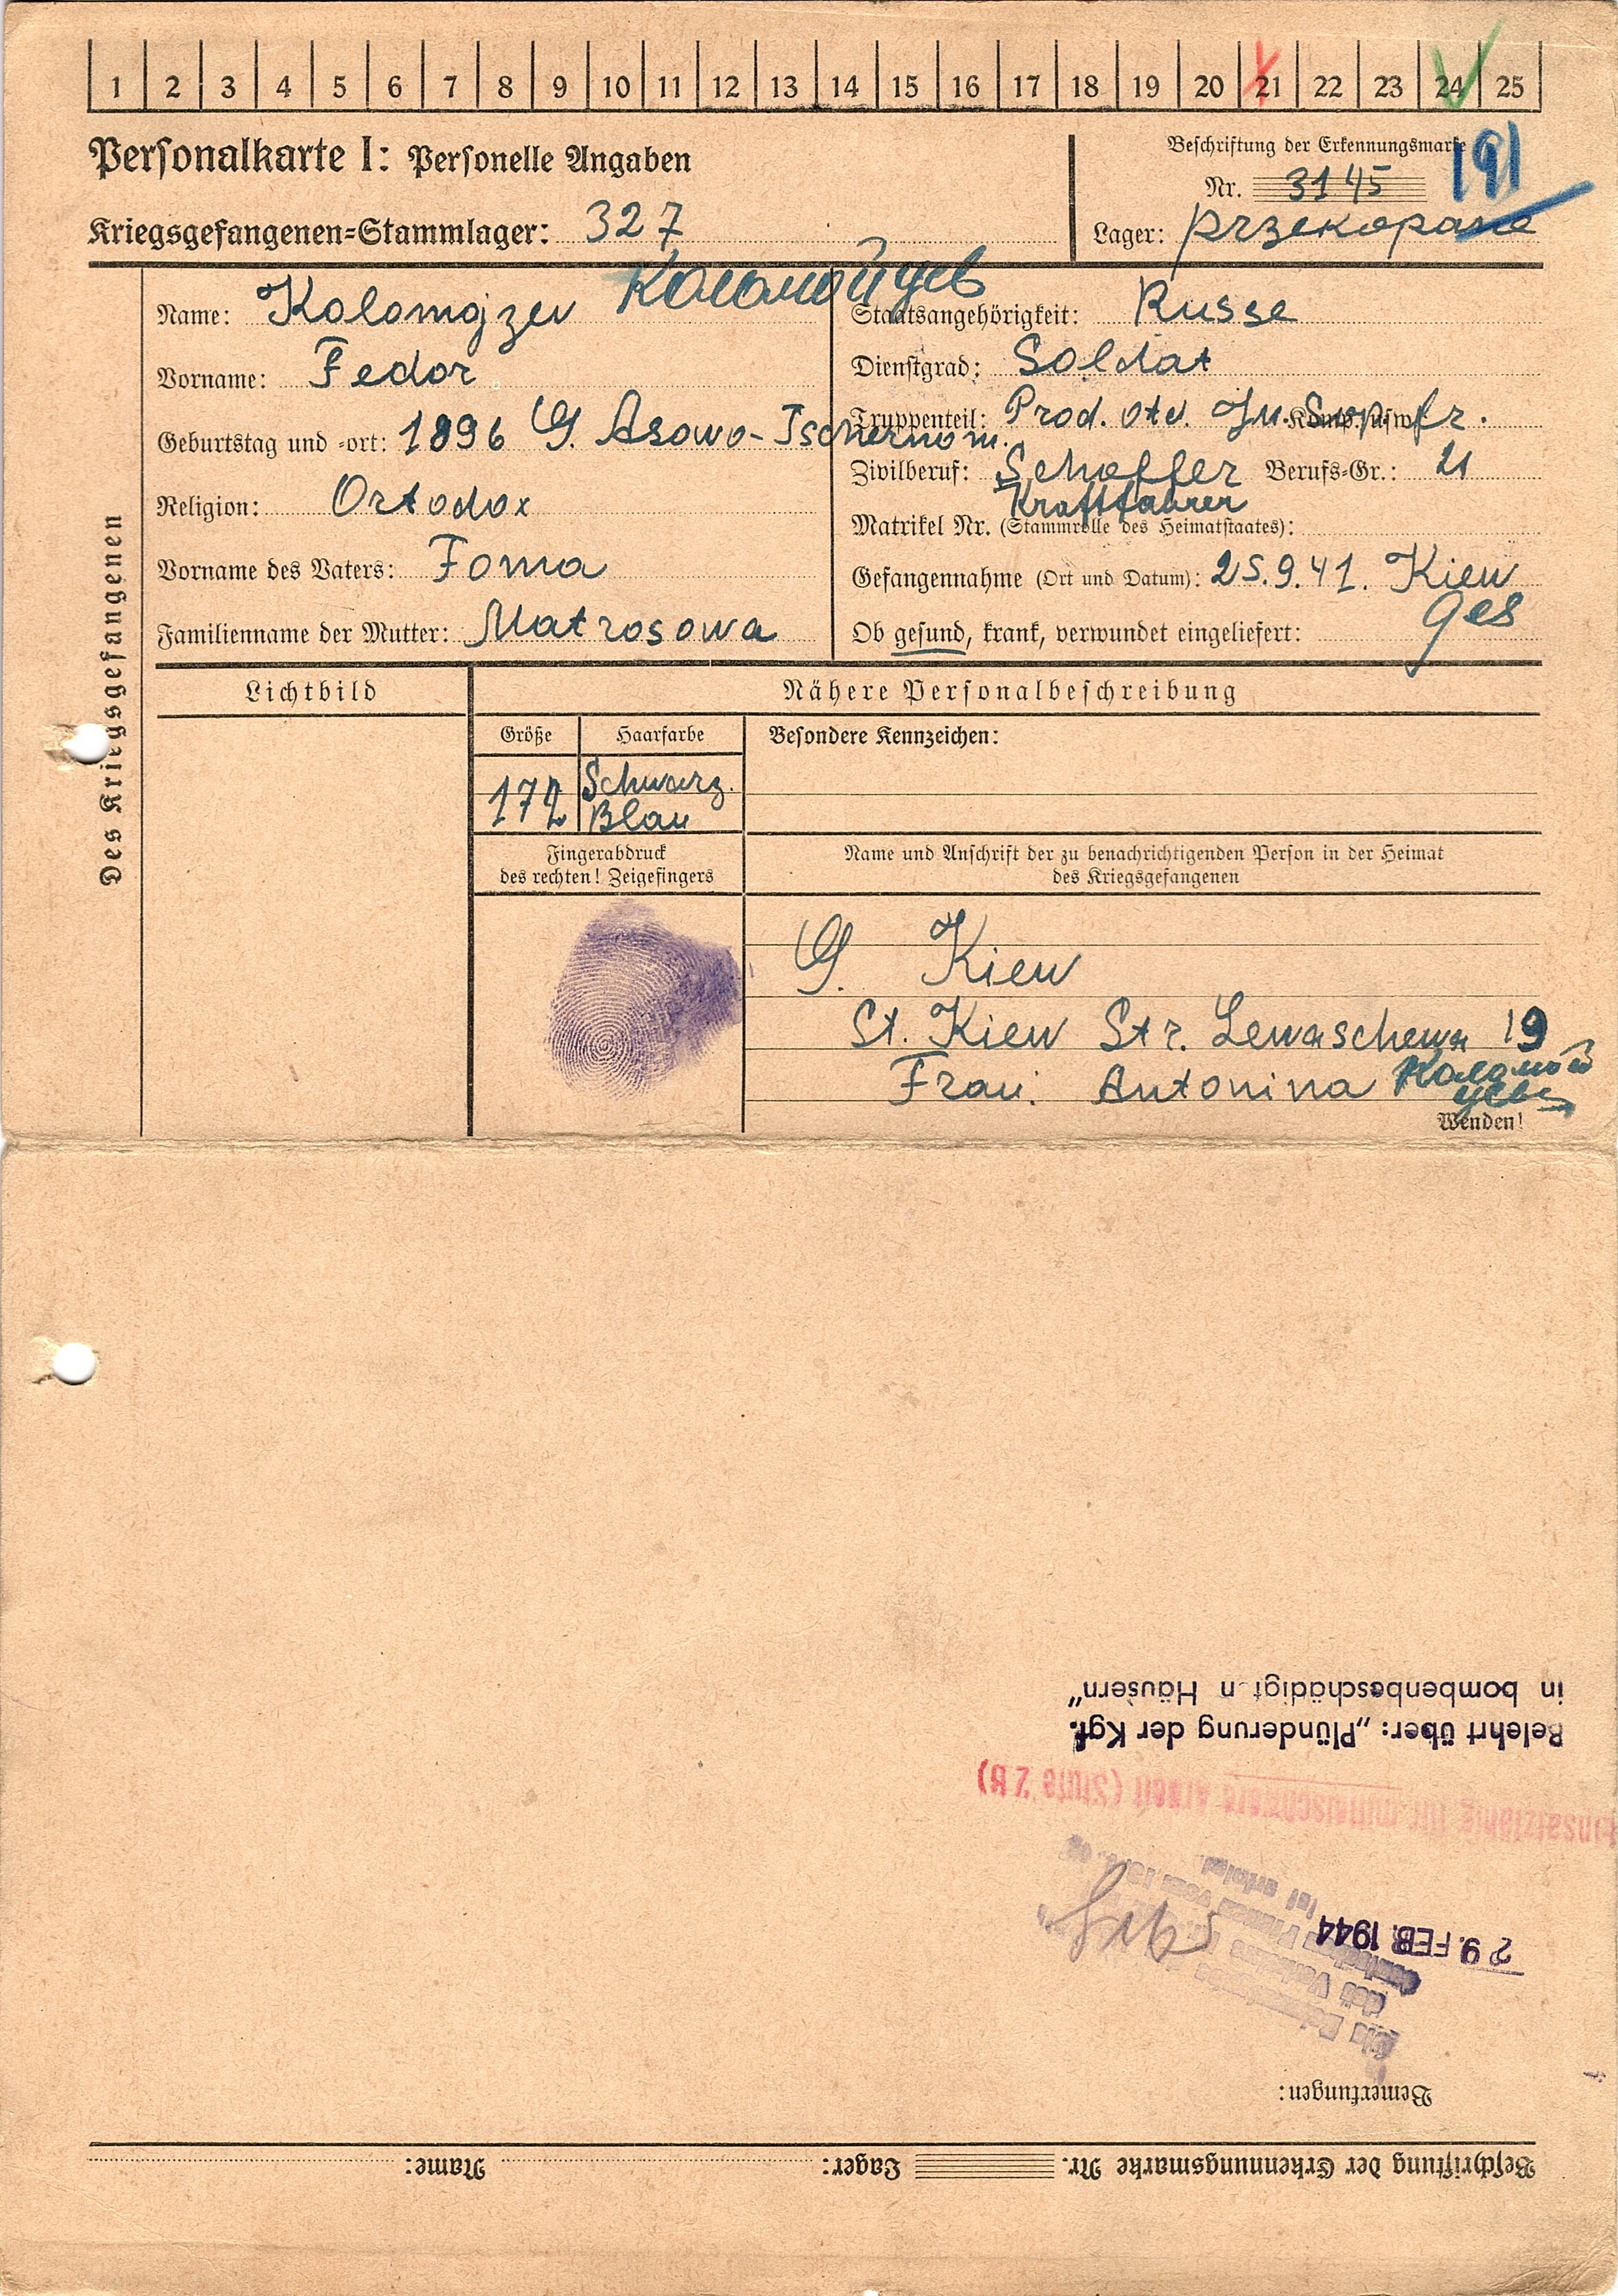 1 2 3 4 5 6 7 8 9 10 11 12 13 14 15 16 17 18 19 20 21 22 23 24 25
Personalkarte I: Personelle Angaben
Beschriftung der Erkennungsmarke
191
Nr. 3145
Kriegsgefangenen=Stammlager: 327
Lager: Przekopane
Des Kriegsgefangenen
Name: Kolomojzew Коломойцев
Vorname: Fedor
Geburtstag und =ort: 1896 G. Asowo-Tschernom.
Religion: Ortodox
Vorname des Vaters: Foma
Familienname der Mutter: Matrosowa
Staatsangehörigkeit: Russe
Dienstgrad: Soldat
Truppenteil: Prod. otd. Komp. usw.: fr.
Zivilberuf: Schoffer Berufs=Gr.: 21
Kraftfahrer
Matrikel Nr. (Stammrolle des Heimatstaates):
Gefangennahme (Ort und Datum): 25.9.41. Kiew
Ob gesund, krank, verwundet eingeliefert: ges
Lichtbild
Nähere Personalbeschreibung
Größe Haarfarbe Besondere Kennzeichen:
172 Schwarz.
Blau
Fingerabdruck
des rechten! Zeigefingers
Name und Anschrift der zu benachrichtigenden Person in der Heimat
des Kriegsgefangenen
G. Kiew
St. Kiew Str. Lewaschewa 19
Frau. Antonina Коломой
цева
Wenden!
Beschriftung der Erkennungsmarke Nr. Lager: Name:
Bemerkungen:
29. FEB. 1944
ist erfolgt
Einsatzfähig für mittelschwere Arbeit (Stufe 2B)
Belehrt über: „Plünderung der Kgf.
in bombenbeschädigt n Häusern"